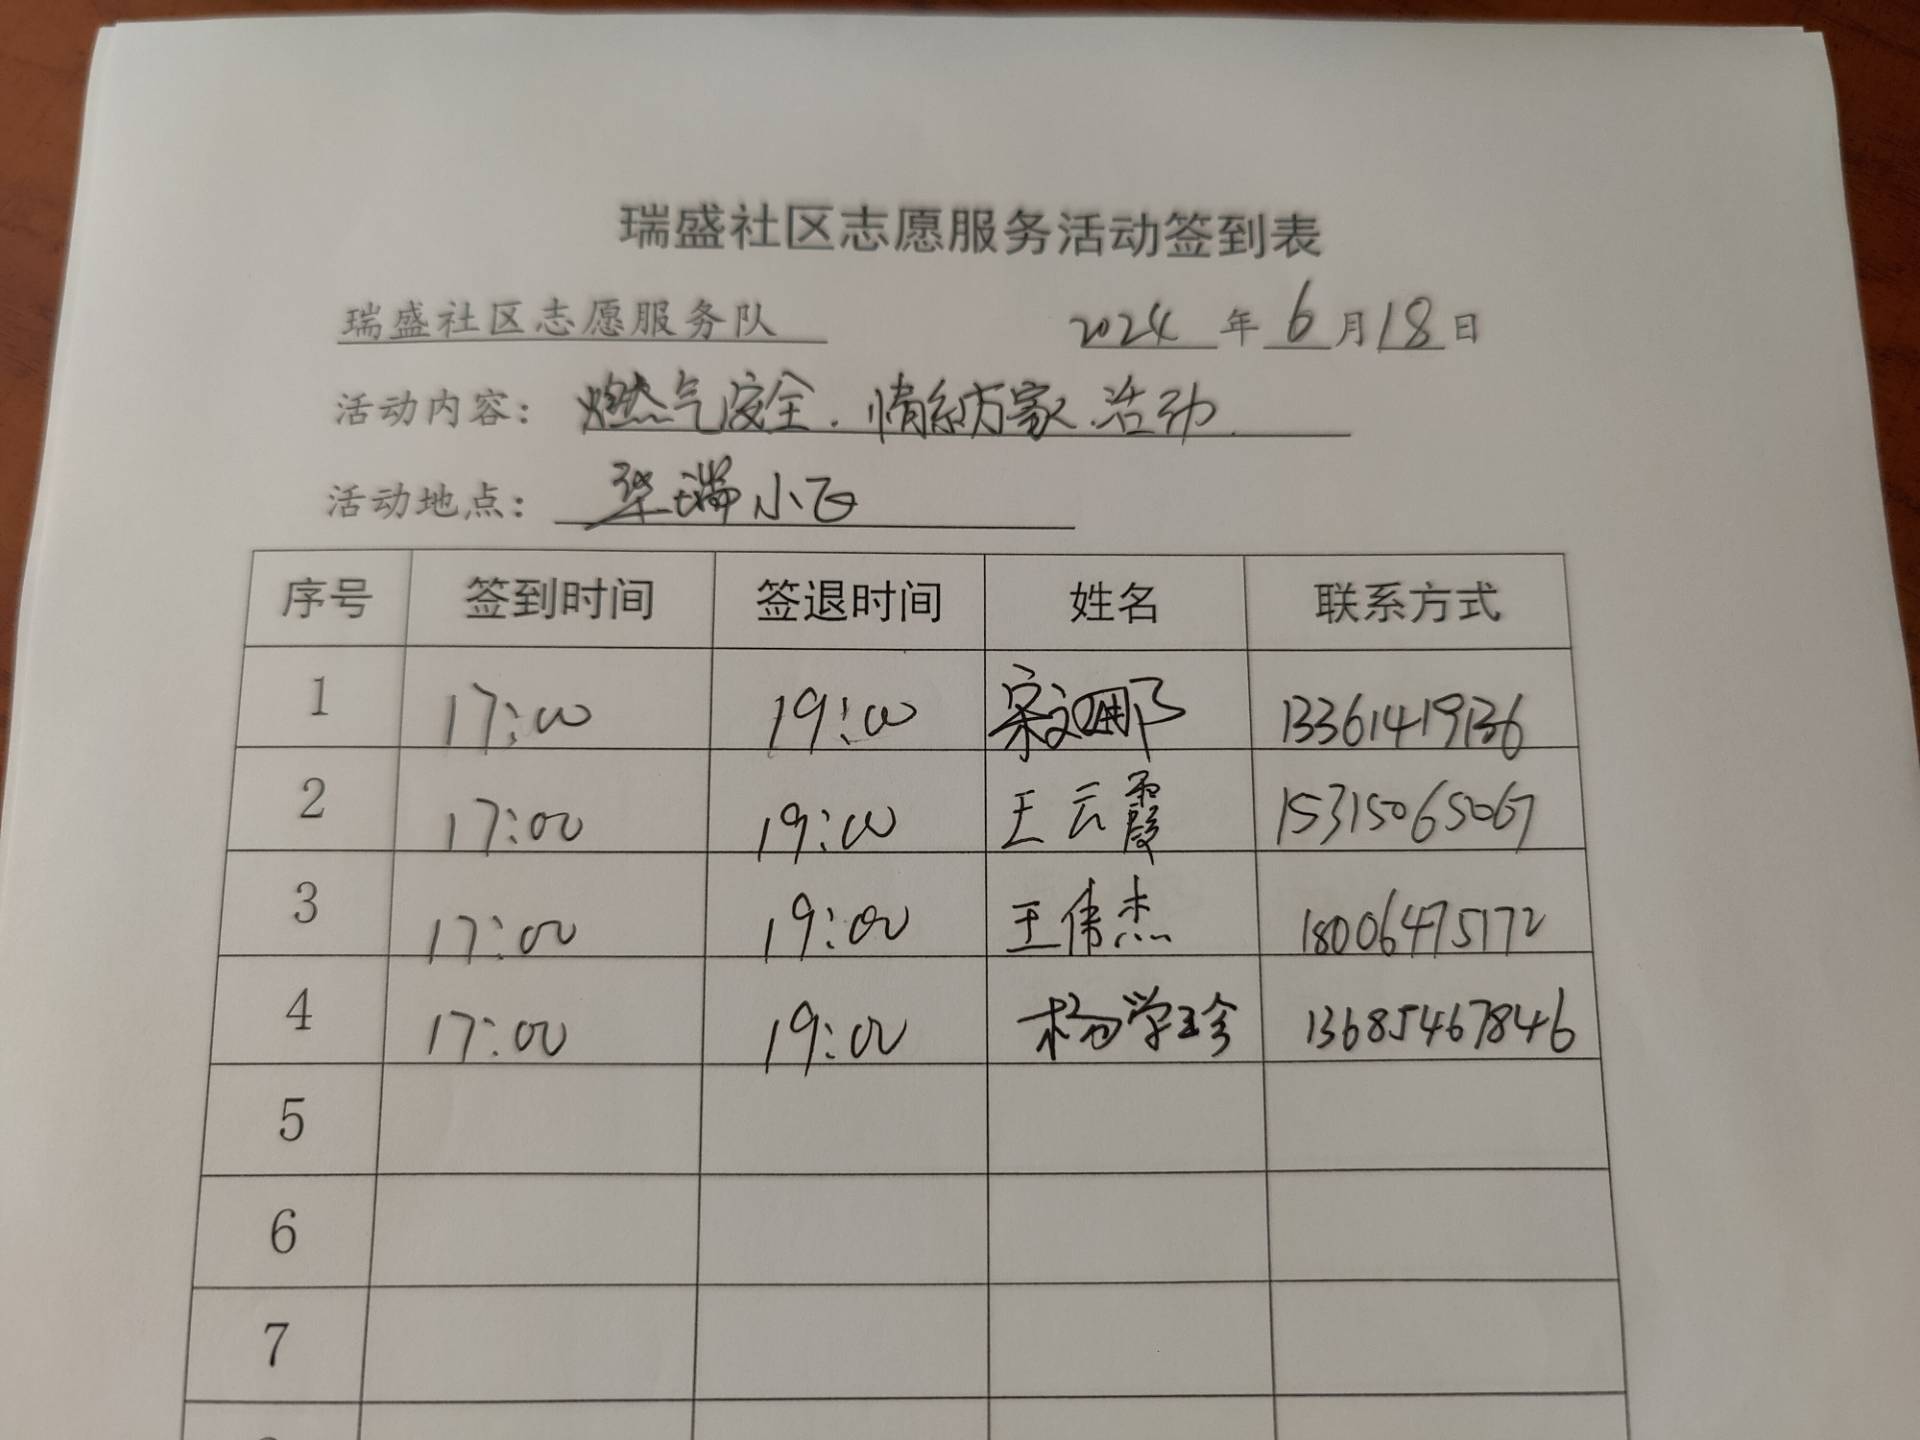 瑞盛社区志愿服务活动签到表
瑞盛社区志愿服务队 2024 年 6 月 18 日
活动内容： 燃气安全.情系万家.活动
活动地点： 华瑞小区
序号 签到时间 签退时间 姓名 联系方式
1 17:00 19:00 宋文娜 13361419136
2 17:00 19:00 王云霞 15315065067
3 17:00 19:00 王伟杰 18006475172
4 17:00 19:00 杨学珍 13685467846
5
6
7